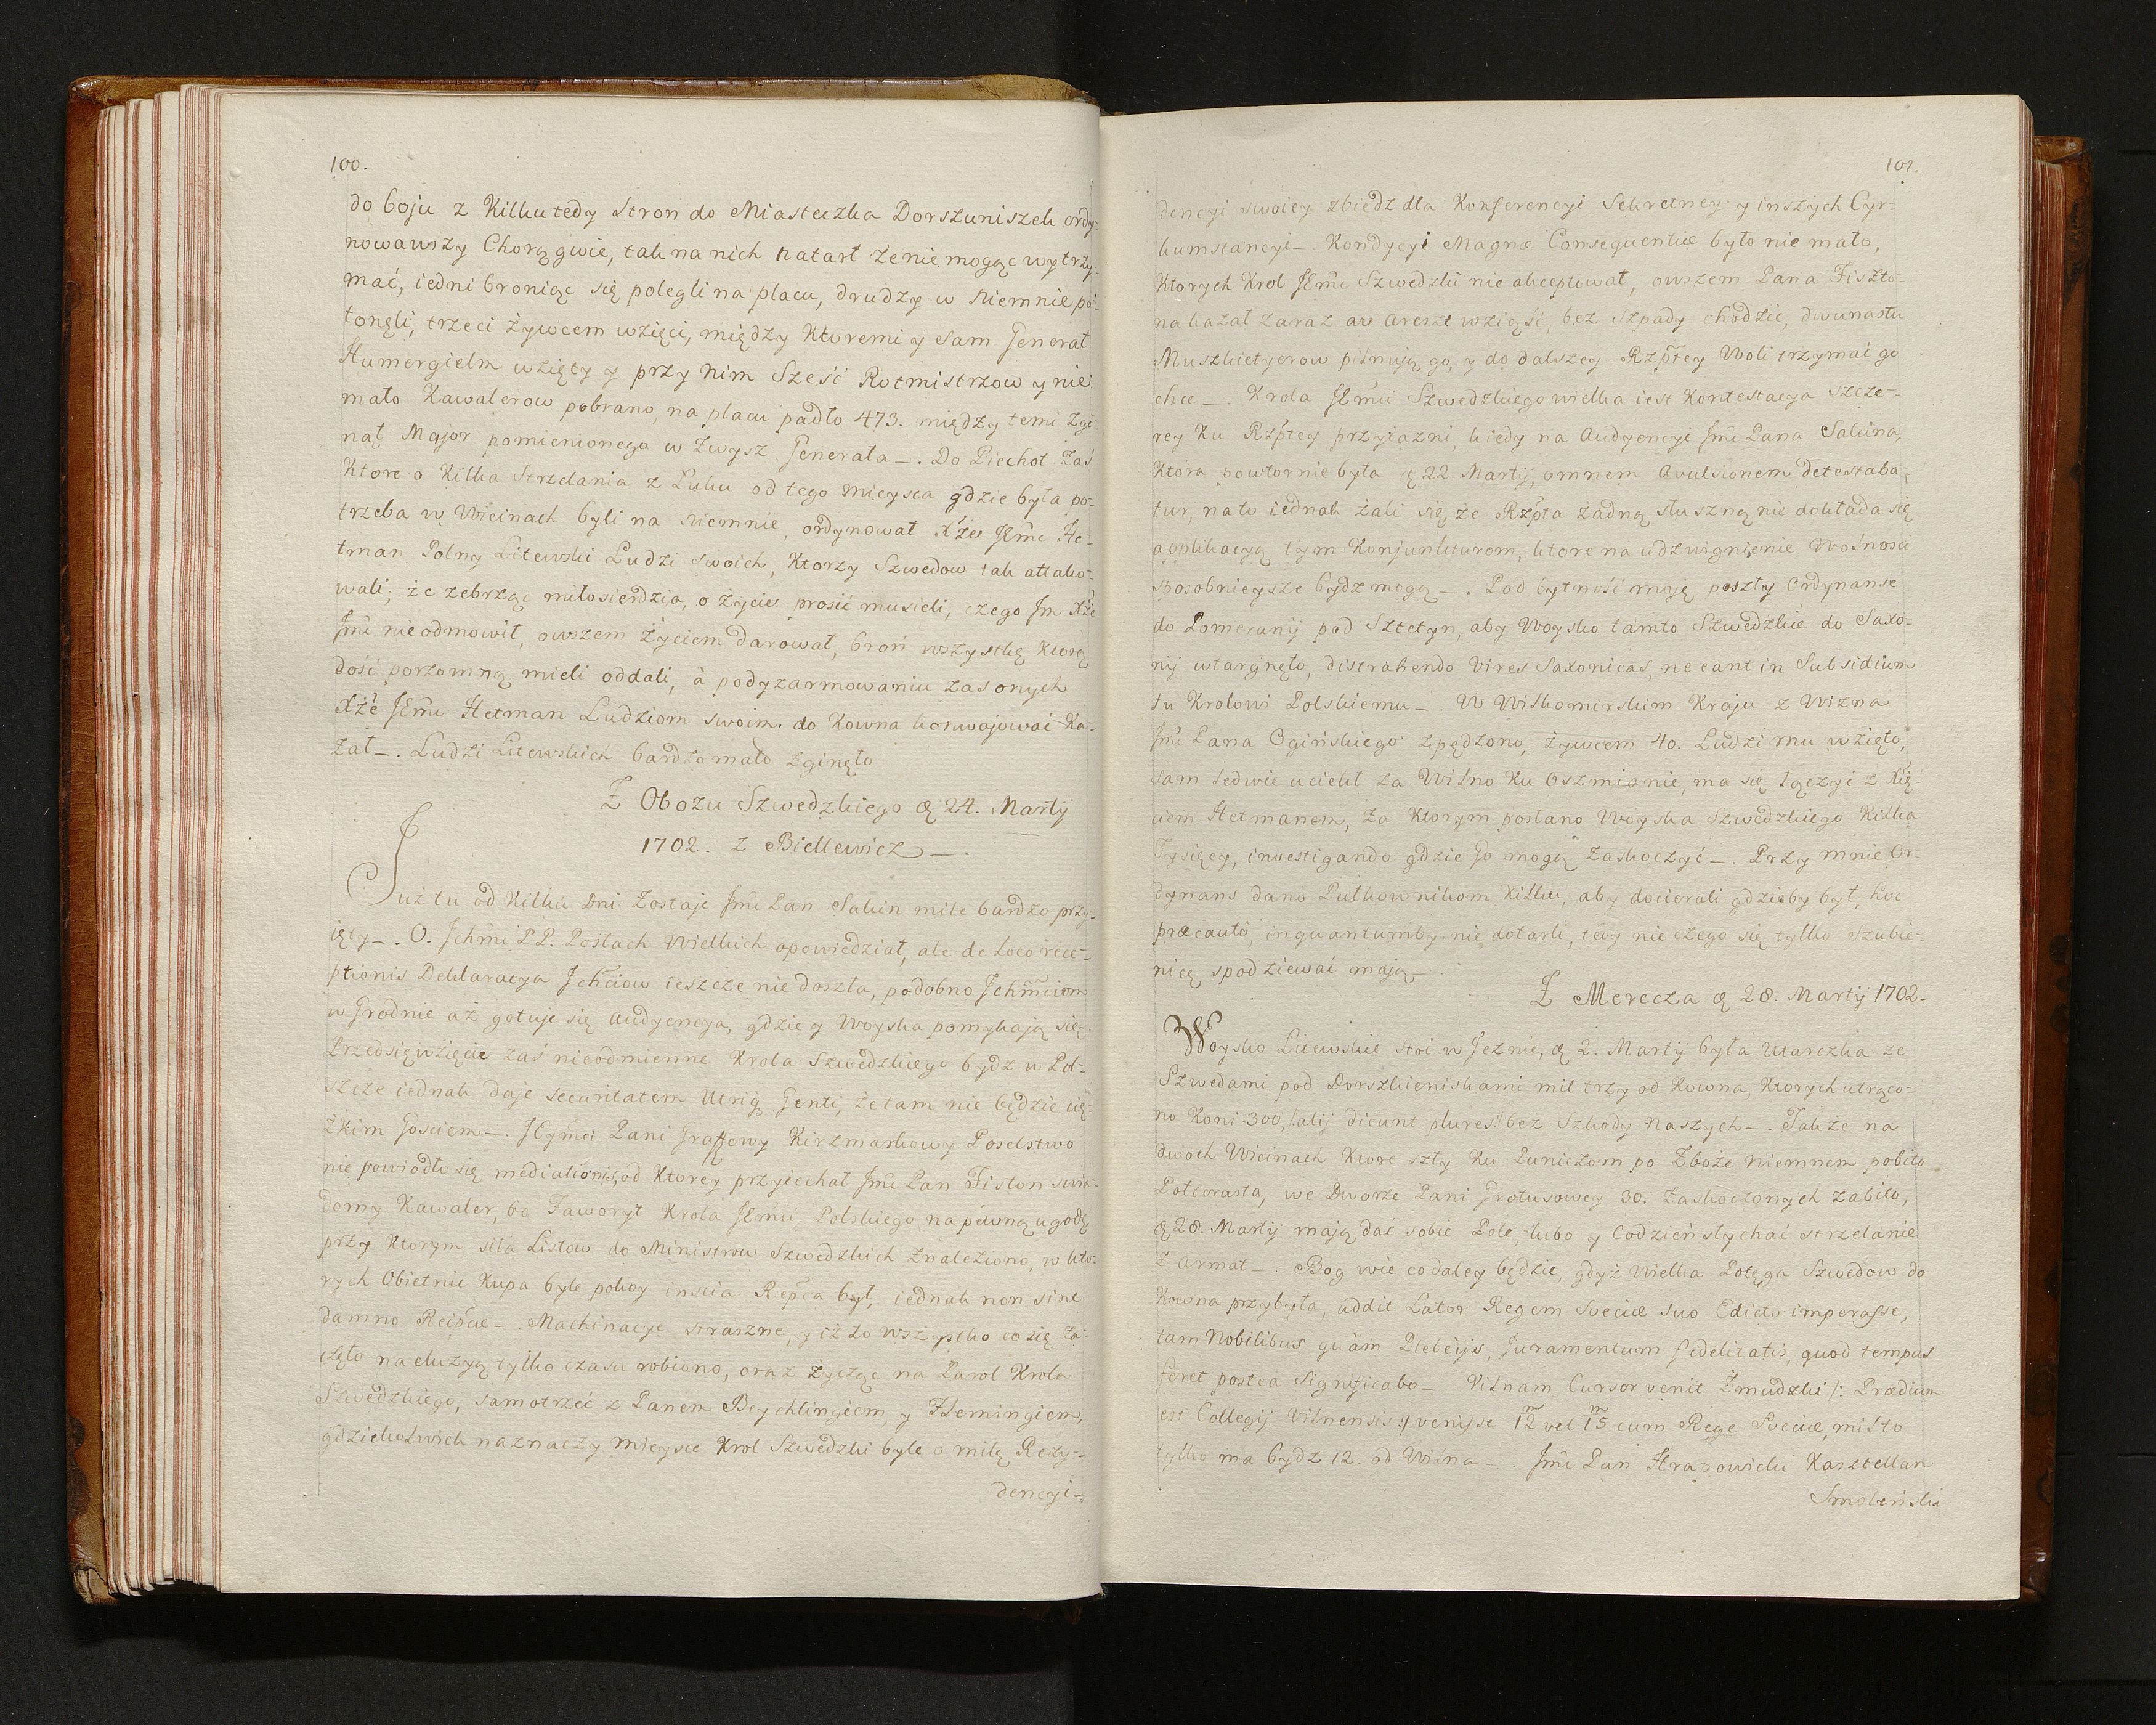 100.
do boju z Kilku tedy Stron do Miasteczka Dorszuniszek ordy-
nowawszy Chorągwie, tak na nich natarł że nie mogąc wytrzy-
mać, iedni broniąc się polegli na placu, drudzy w Niemnie po-
tonęli, trzeci żywcem wzięci, między Ktoremi y sam Generał
Humergielm wzięty y przy nim Sześć Rotmistrzow y nie
mało Kawalerow pobrano, na placu padło 473. między temi zgi-
nął Major pomienionego w Zwysz Generała_. Do Piechot Zaś
Ktore o Kilka Strzelania z Łuku od tego mieysca gdzie była po-
trzeba w Wicinach byli na Niemnie, ordynował Xże JEmć He-
tman Polny Litewski Ludzi swoich, Ktorzy Szwedow tak attako-
wali; że zebrząc miłosierdzia, o życie prosić musieli, czego Im Xże
Jmć nie odmowił, owszem Życiem darował, broń wszystkę Ktorą
dość porzomną mieli oddali, à po dyzarmowaniu Zas onych
Xżć JEmć Hetman Ludziom swoim do Kowna konwojować Ka-
zał_. Ludzi Litewskich bardzo mało zginęło
Z Obozu Szwedzkiego ą 24. Martij
1702. z Biellewicz_.
Już tu od Kilku Dni Zostaje Jmć Pan Sakin mile bardzo przy-
ięty_. O Ichmć PP. Posłach Wielkich opowiedział, ale de Loco rece-
ptionis Deklaracya Ichciow ieszcze nie doszła, podobno Ichmciom
w Grodnie aż gotuje się Audyencya, gdzie y Woyska pomykają się.
Przedsięwzięcie zaś nieodmienne Krola Szwedzkiego bydz w Pol-
szcze iednak daje securitatem Utriq Genti, że tam nie będzie cię-
żkim Gosciem_. JEymci Pani Graffowy Kirzmarkowy Poselstwo
nie powiodło się mediationis, od Ktorey przyiechał Jmć Pan Fiston swia-
domy Kawaler, bo Faworyt Krola JEmci Polskiego na pewną ugodę
przy Ktorym siła Listow do Ministrow Szwedzkich Znaleziono, w kto-
rych Obietnic Kupa byle pokoy inscia Rępca był, iednak non sine
damno Reipcae_. Machinacye straszne, y iż to wszystko co się za-
częło na dłuzyą tylko czasu robiono, oraz życząc na Parol Krola
Szwedzkiego, samotrzeć z Panem Beychlingiem, y Flemingiem,
gdziekolwiek naznaczy mieysce Krol Szwedzki byle o milę Rezy-
dencyi-
101.
dencyi swoiey zbiedz dla Konferencyi Sekretney y inszych Cyr-
kumstancyi_. Kondycyi Magnæ Consequentiæ było nie mało,
Ktorych Krol JEmć Szwedzki nie akceptował, owszem Pana Fiszto-
na kazał zaraz aw areszt wziąść, bez Szpady chodzić, dwunastu
Muszkietyerow pilnują go, y do dalszey Rzptey Woli trzymać go
chce_. Krola JEmci Szwedzkiego wielka iest Kontestacya szcze-
rey Ku Rzptey przyiazni, kiedy na Audyencyi Jmć Pana Sakina,
Ktora powtornie była ą 22. Martij, omnem Avulsionem detestaba-
tur, na to iednak żali się że Rzpta żadną słuszną nie dokłada się
applikacyą tym Konjunkturom, ktore na udzwignienie Wolności
sposobnieysze bydz mogą_. Pod bytność moję poszły Ordynanse
do Pomeranij pod Sztetyn, aby Woysko tamto Szwedzkie do Saxo-
nij wtargnęło, distrahendo Vires Saxonicas, ne eant in Subsidium
tu Krolowi Polskiemu_. W Wiłkomirskim Kraju z Wizna
Jmć Pana Ogińskiego spędzono, żywcem 40. Ludzi mu wzięto,
sam ledwie uciekł za Wilno Ku Oszmianie, ma się łączyć z Xię-
ciem Hetmanem, Za Ktorym posłano Woyska Szwedzkiego Kilka
Tysięcy, investigando gdzie go mogą Zaskoczyć_. Przy mnie Or-
dynans dano Pułkownikom Kilku, aby docierali gdzieby był, hoc
præcautô, inquantumby nie dotarli, tedy nie czego się tylko Szubie-
nicę spodziewać mają_.
Z Merecza ą 28. Martij 1702-
Woysko Litewskie stoi w Jeznie, ą 2. Martij była Utarczka ze
Szwedami pod Dorszkieniskami mil trzy od Kowna, Ktorych utraco-
no Koni 300, /:alij dicunt plures:/ bez Szkody Naszych_. Także na
dwoch Wicinach Ktore szły Ku Puniczom po Zboże Niemnem pobito
Połtorasta, we Dworze Pani Grotusowey 30. Zaskoczonych zabito,
ą 28. Martij mają dać sobie Pole, lubo y Codzień słychać strzelanie
Z armat_. Bog wie co daley będzie, gdyż Wielka Potęga Szwedow do
Kowna przybyła, addit Lator Regem Sveciæ suo Edicto imperasse,
tam Nobilibus quàm Plebeijs, Juramentum fidelitatis, quod tempus
feret postea Significabo_. Vilnam Cursor venit Żmudzki /: Prædium
est Collegij Vilnensis :/ venisse 12 vel 15 cum Rege Sveciæ, milto
tylko ma bydz 12. od Wilna_. Jmć Pan Hrapowicki Kasztellan
Smoleński